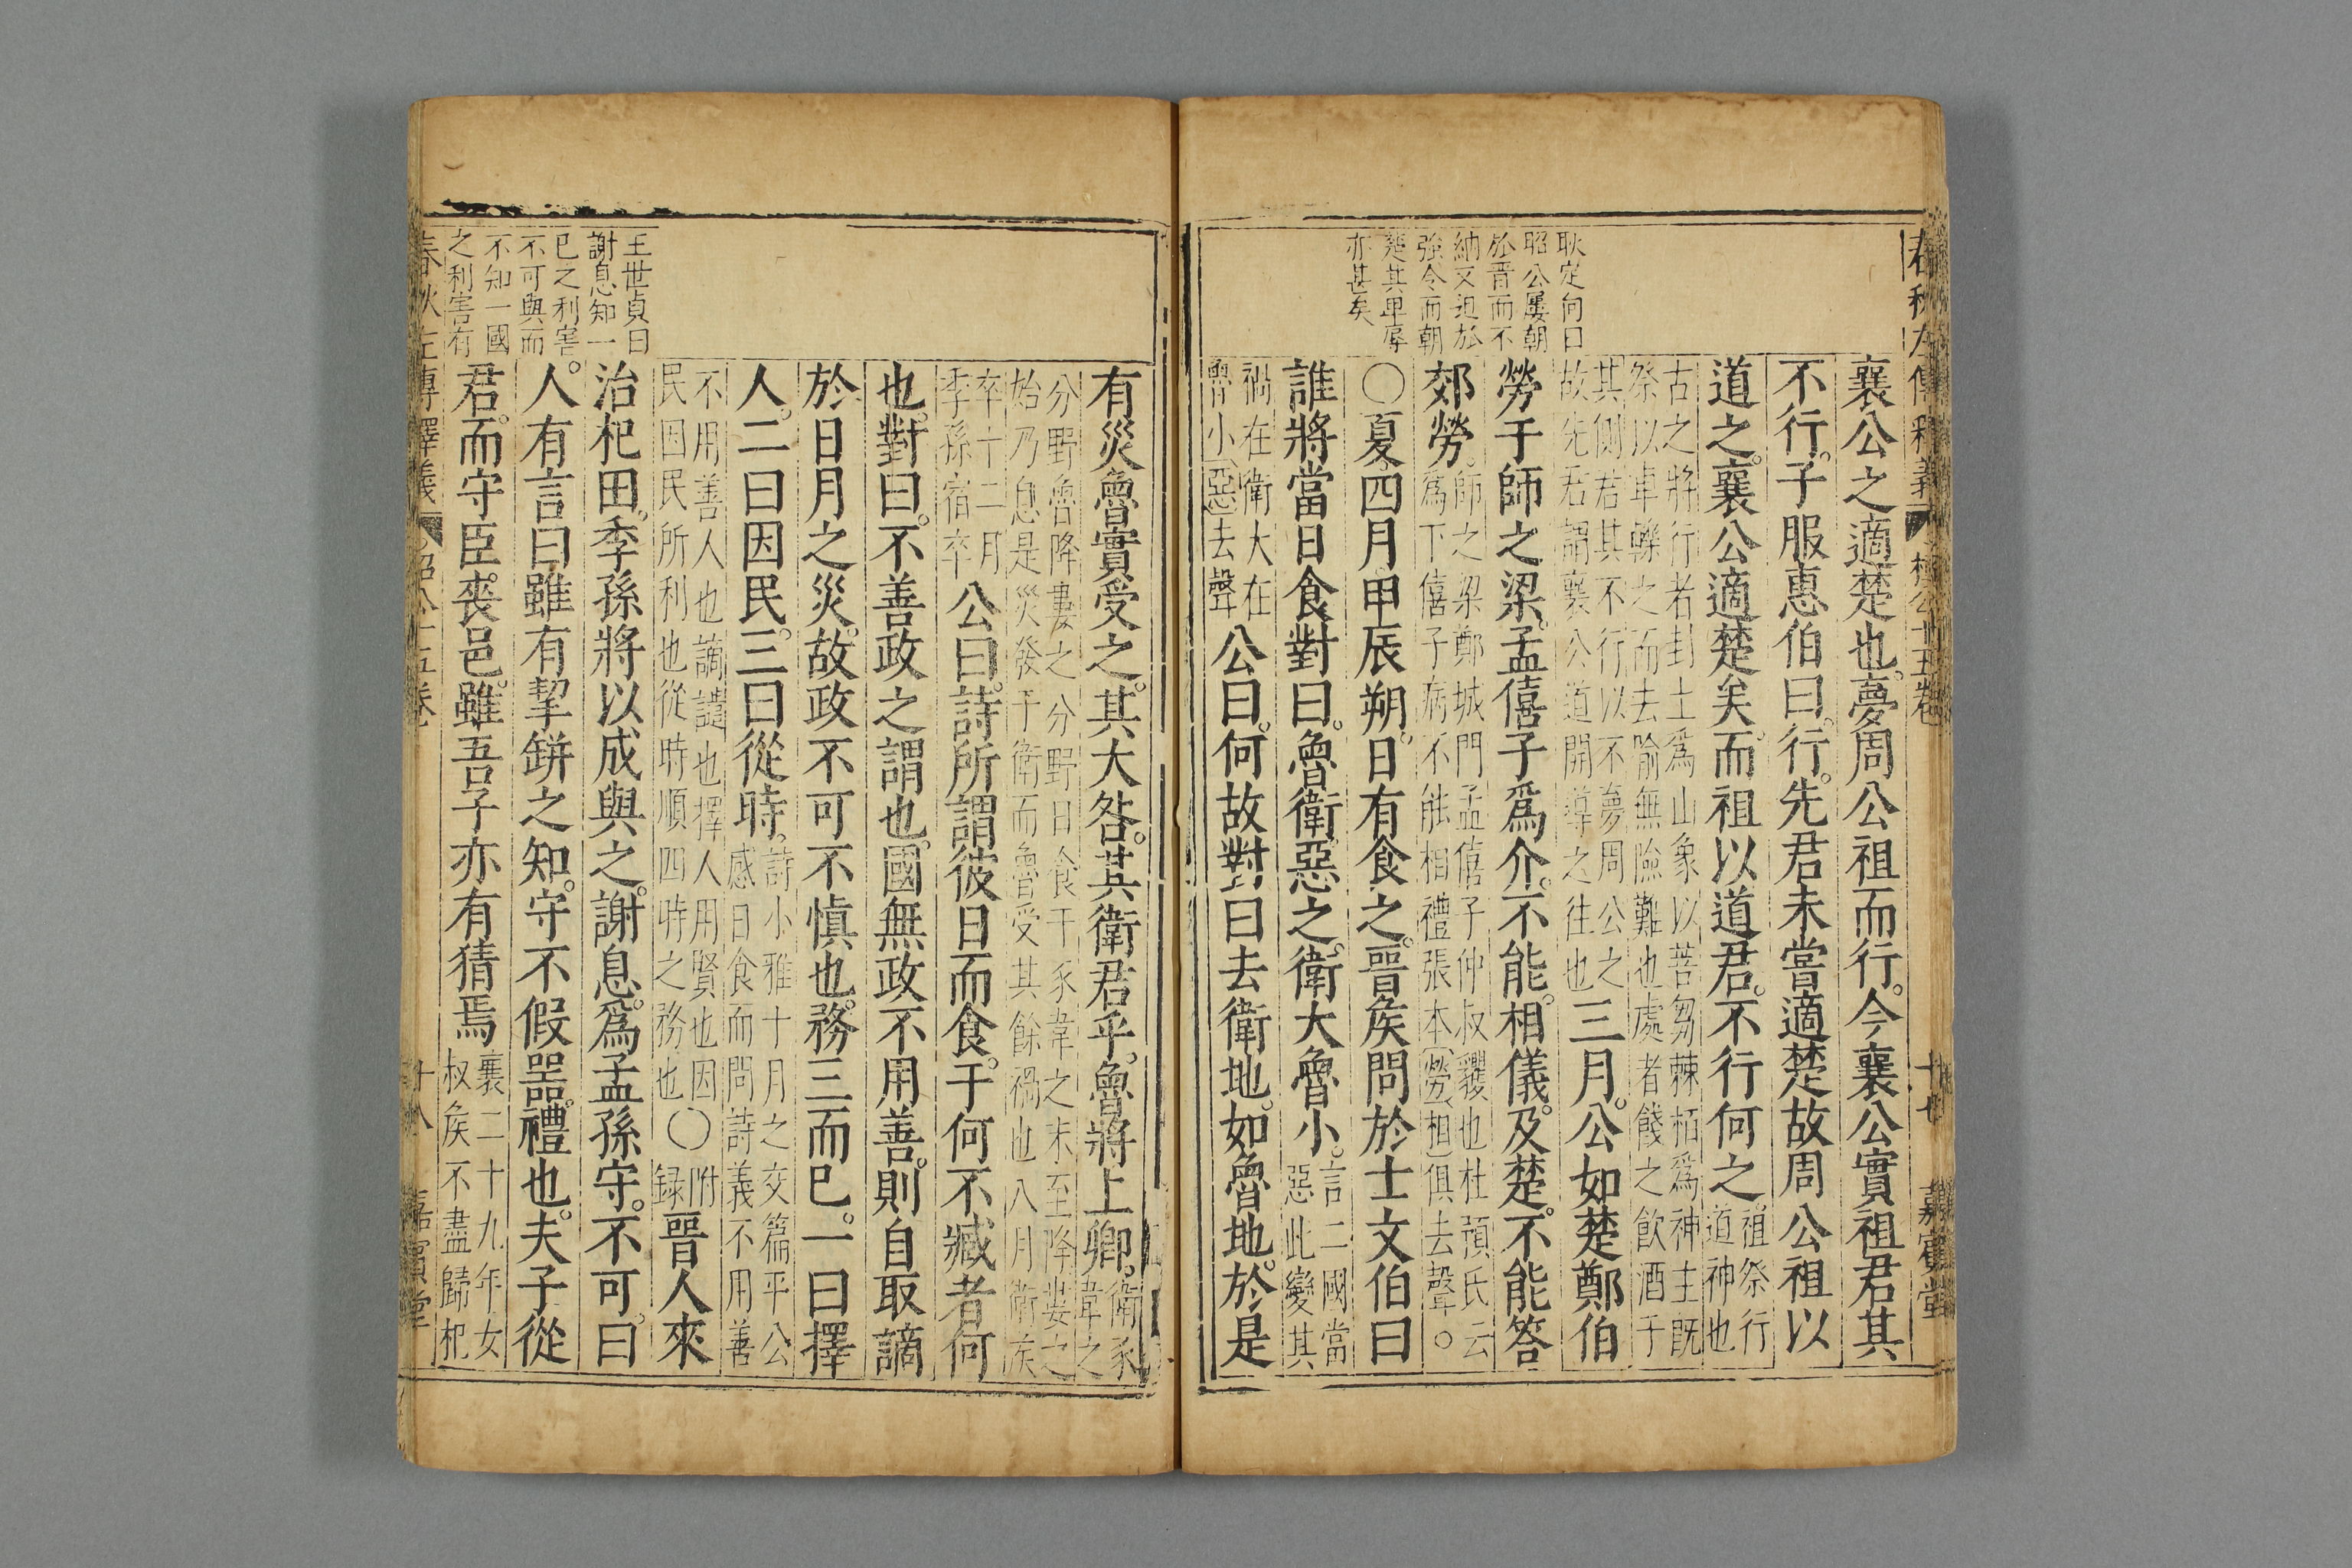 襄公之適楚也。夢周公祖而行。今襄公實祖君其
不行。子服惠伯曰。行。先君未嘗適楚故周公祖以
道之。襄公適楚矣。而祖以道君。不行何之祖祭行道神也
古之將行者封土為山象以菩芻棘栢為神主既
祭以車轢之而去喻無險難也處者餞之飲酒于
其側君其不行以不夢周公之
故先君謂襄公道開導之往也三月。公如楚鄭伯
勞于師之梁。孟僖子爲介。不能相儀。及楚。不能答
郊勞。師之梁鄭城門孟僖子仲叔貜也杜預氏云
爲下僖子病不能相禮張本勞相俱去聲〇
〇夏四月甲辰朔。日有食之。晉矦問於士文伯曰
誰將當日食對曰。魯衛惡之。衛大魯小。言二國當惡此變其
禍在衛大在魯小惡去聲公曰。何故對曰去衛地。如魯地。於是
耿定向曰
昭公屢朝
於晉而不
納又迫於
強令而朝
楚其卑辱
亦甚矣
春秋左傳釋義 十七 嘉賓堂
有災魯實受之。其大咎。其衛君乎。魯將上卿。衛豕韋之
分野魯降婁之分野日食于豕韋之末至降婁之
始乃息是災發于衛而魯受其餘禍也八月衛矦
卒十二月季孫宿卒公曰。詩所謂彼日而食。于何不臧者何
也。對曰。不善政之謂也。國無政不用善。則自取謫
於日月之災。故政不可不愼也。務三而已。一曰擇
人。二曰因民。三曰從時。詩小雅十月之交篇平公感日食而問詩義不用善
不用善人也謫譴也擇人用賢也因
民因民所利也從時順四時之務也〇附録晉人來
治杞田。季孫將以成與之。謝息。爲孟孫守。不可。曰
人。有言曰雖有挈缾之知。守不假噐。禮也。夫子從
君。而守臣。喪邑。雖吾子亦有猜焉襄二十九年女叔矦不盡歸杞
王世貞曰
謝息知一
已之利害
不可與而
不知一國
之利害有
春秋左傳釋義 昭公十五卷 十八 嘉賓堂